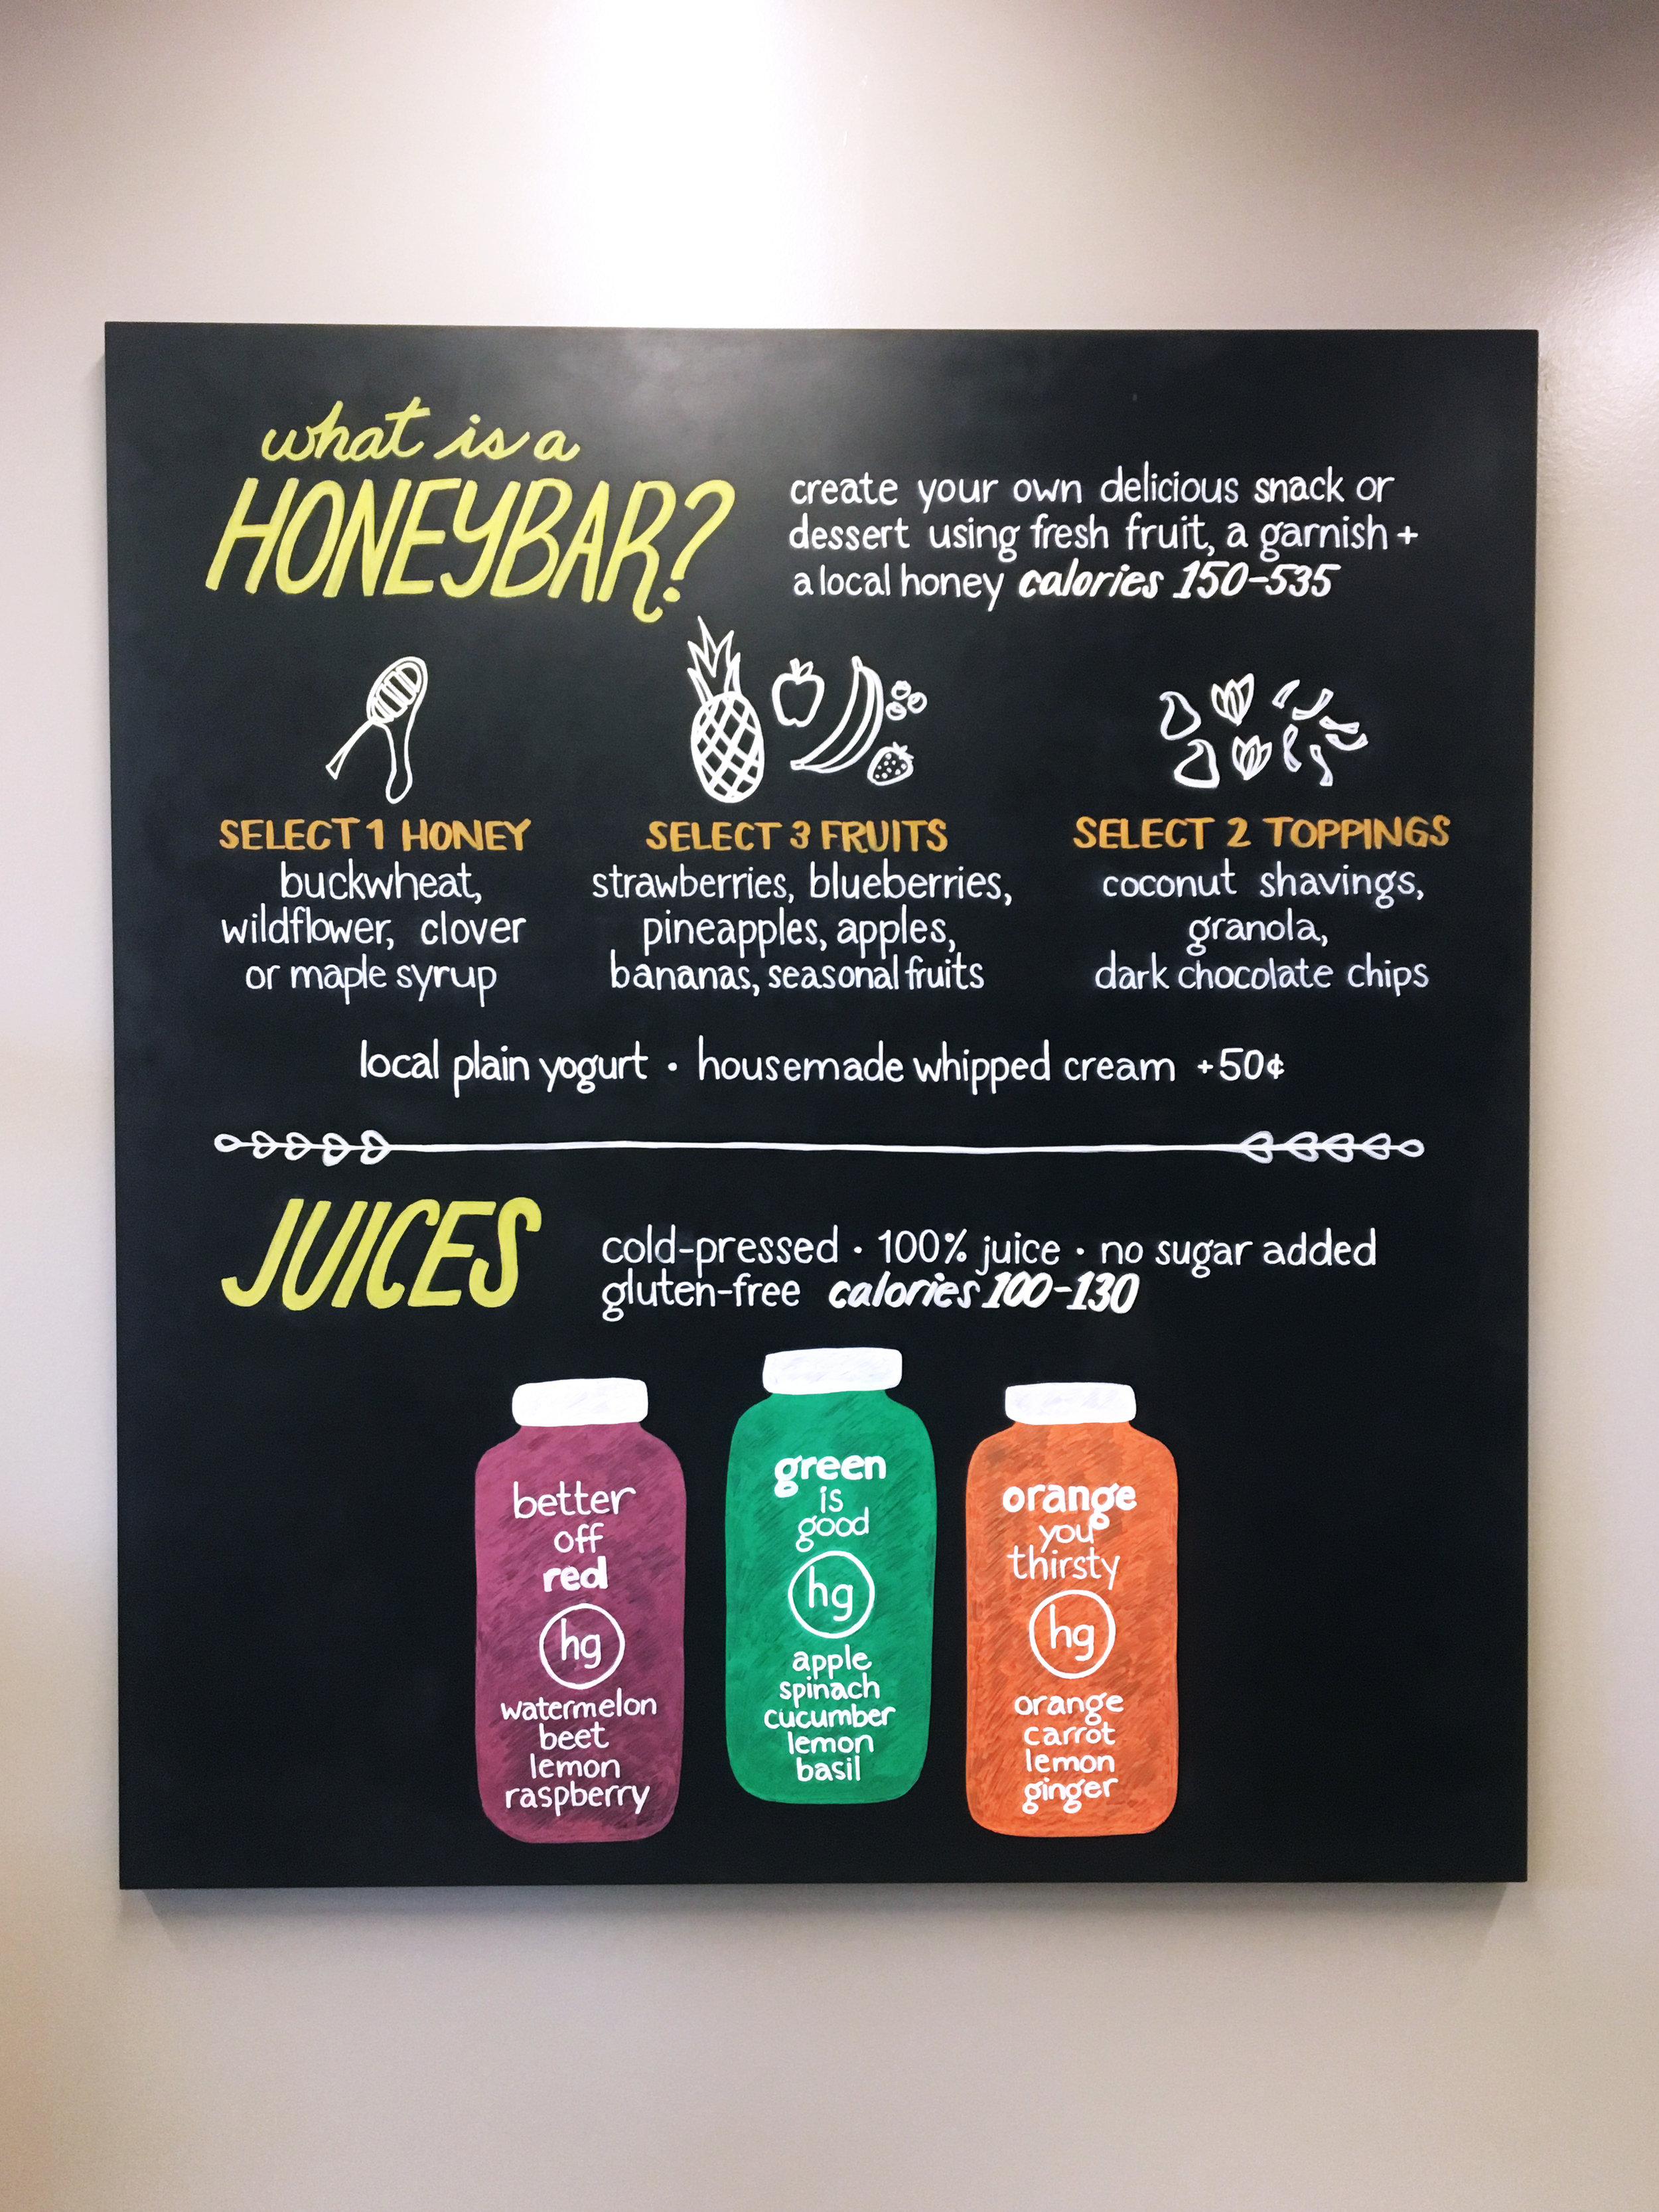 what is a
HONEYBAR?
create your own delicious snack or
dessert using fresh fruit, a garnish +
a local honey calories 150-535
SELECT 1 HONEY
buckwheat,
wildflower, clover
or maple syrup
SELECT 3 FRUITS
strawberries, blueberries,
pineapples, apples,
bananas, seasonal fruits
SELECT 2 TOPPINGS
coconut shavings,
granola,
dark chocolate chips
local plain yogurt • housemade whipped cream +50¢
JUICES
cold-pressed • 100% juice • no sugar added
gluten-free calories 100-130
better
off
red
hg
watermelon
beet
lemon
raspberry
green
is
good
hg
apple
spinach
cucumber
lemon
basil
orange
you
thirsty
hg
orange
carrot
lemon
ginger